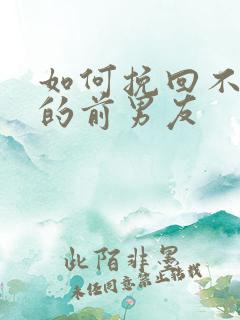 如何挽回不
的前男友
此陌非墨
未经同意禁止转载